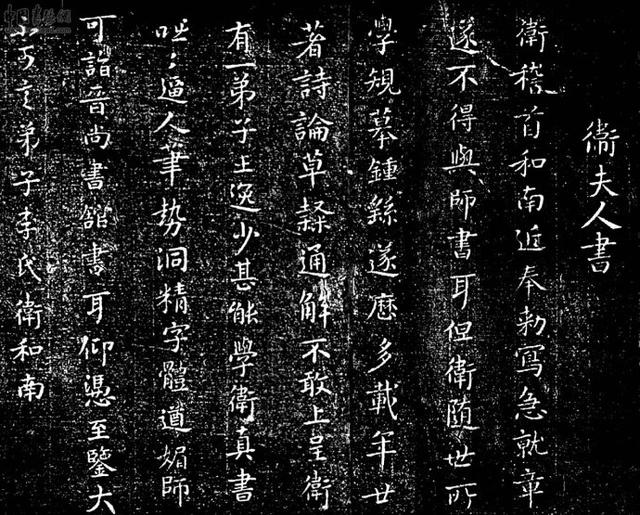 衛夫人書
衛稽首和南近奉勅寫急就章
遂不得與師書耳但衛随世所
學規摹鍾繇遂歷多載年廿
著詩論草隸通解不敢上呈衛
有一弟子王逸少甚能學衛真書
咄〻逼人筆勢洞精字體遒媚師
可詣晉尚書舘書耳仰憑至鑒大
不可言弟子李氏衛和南